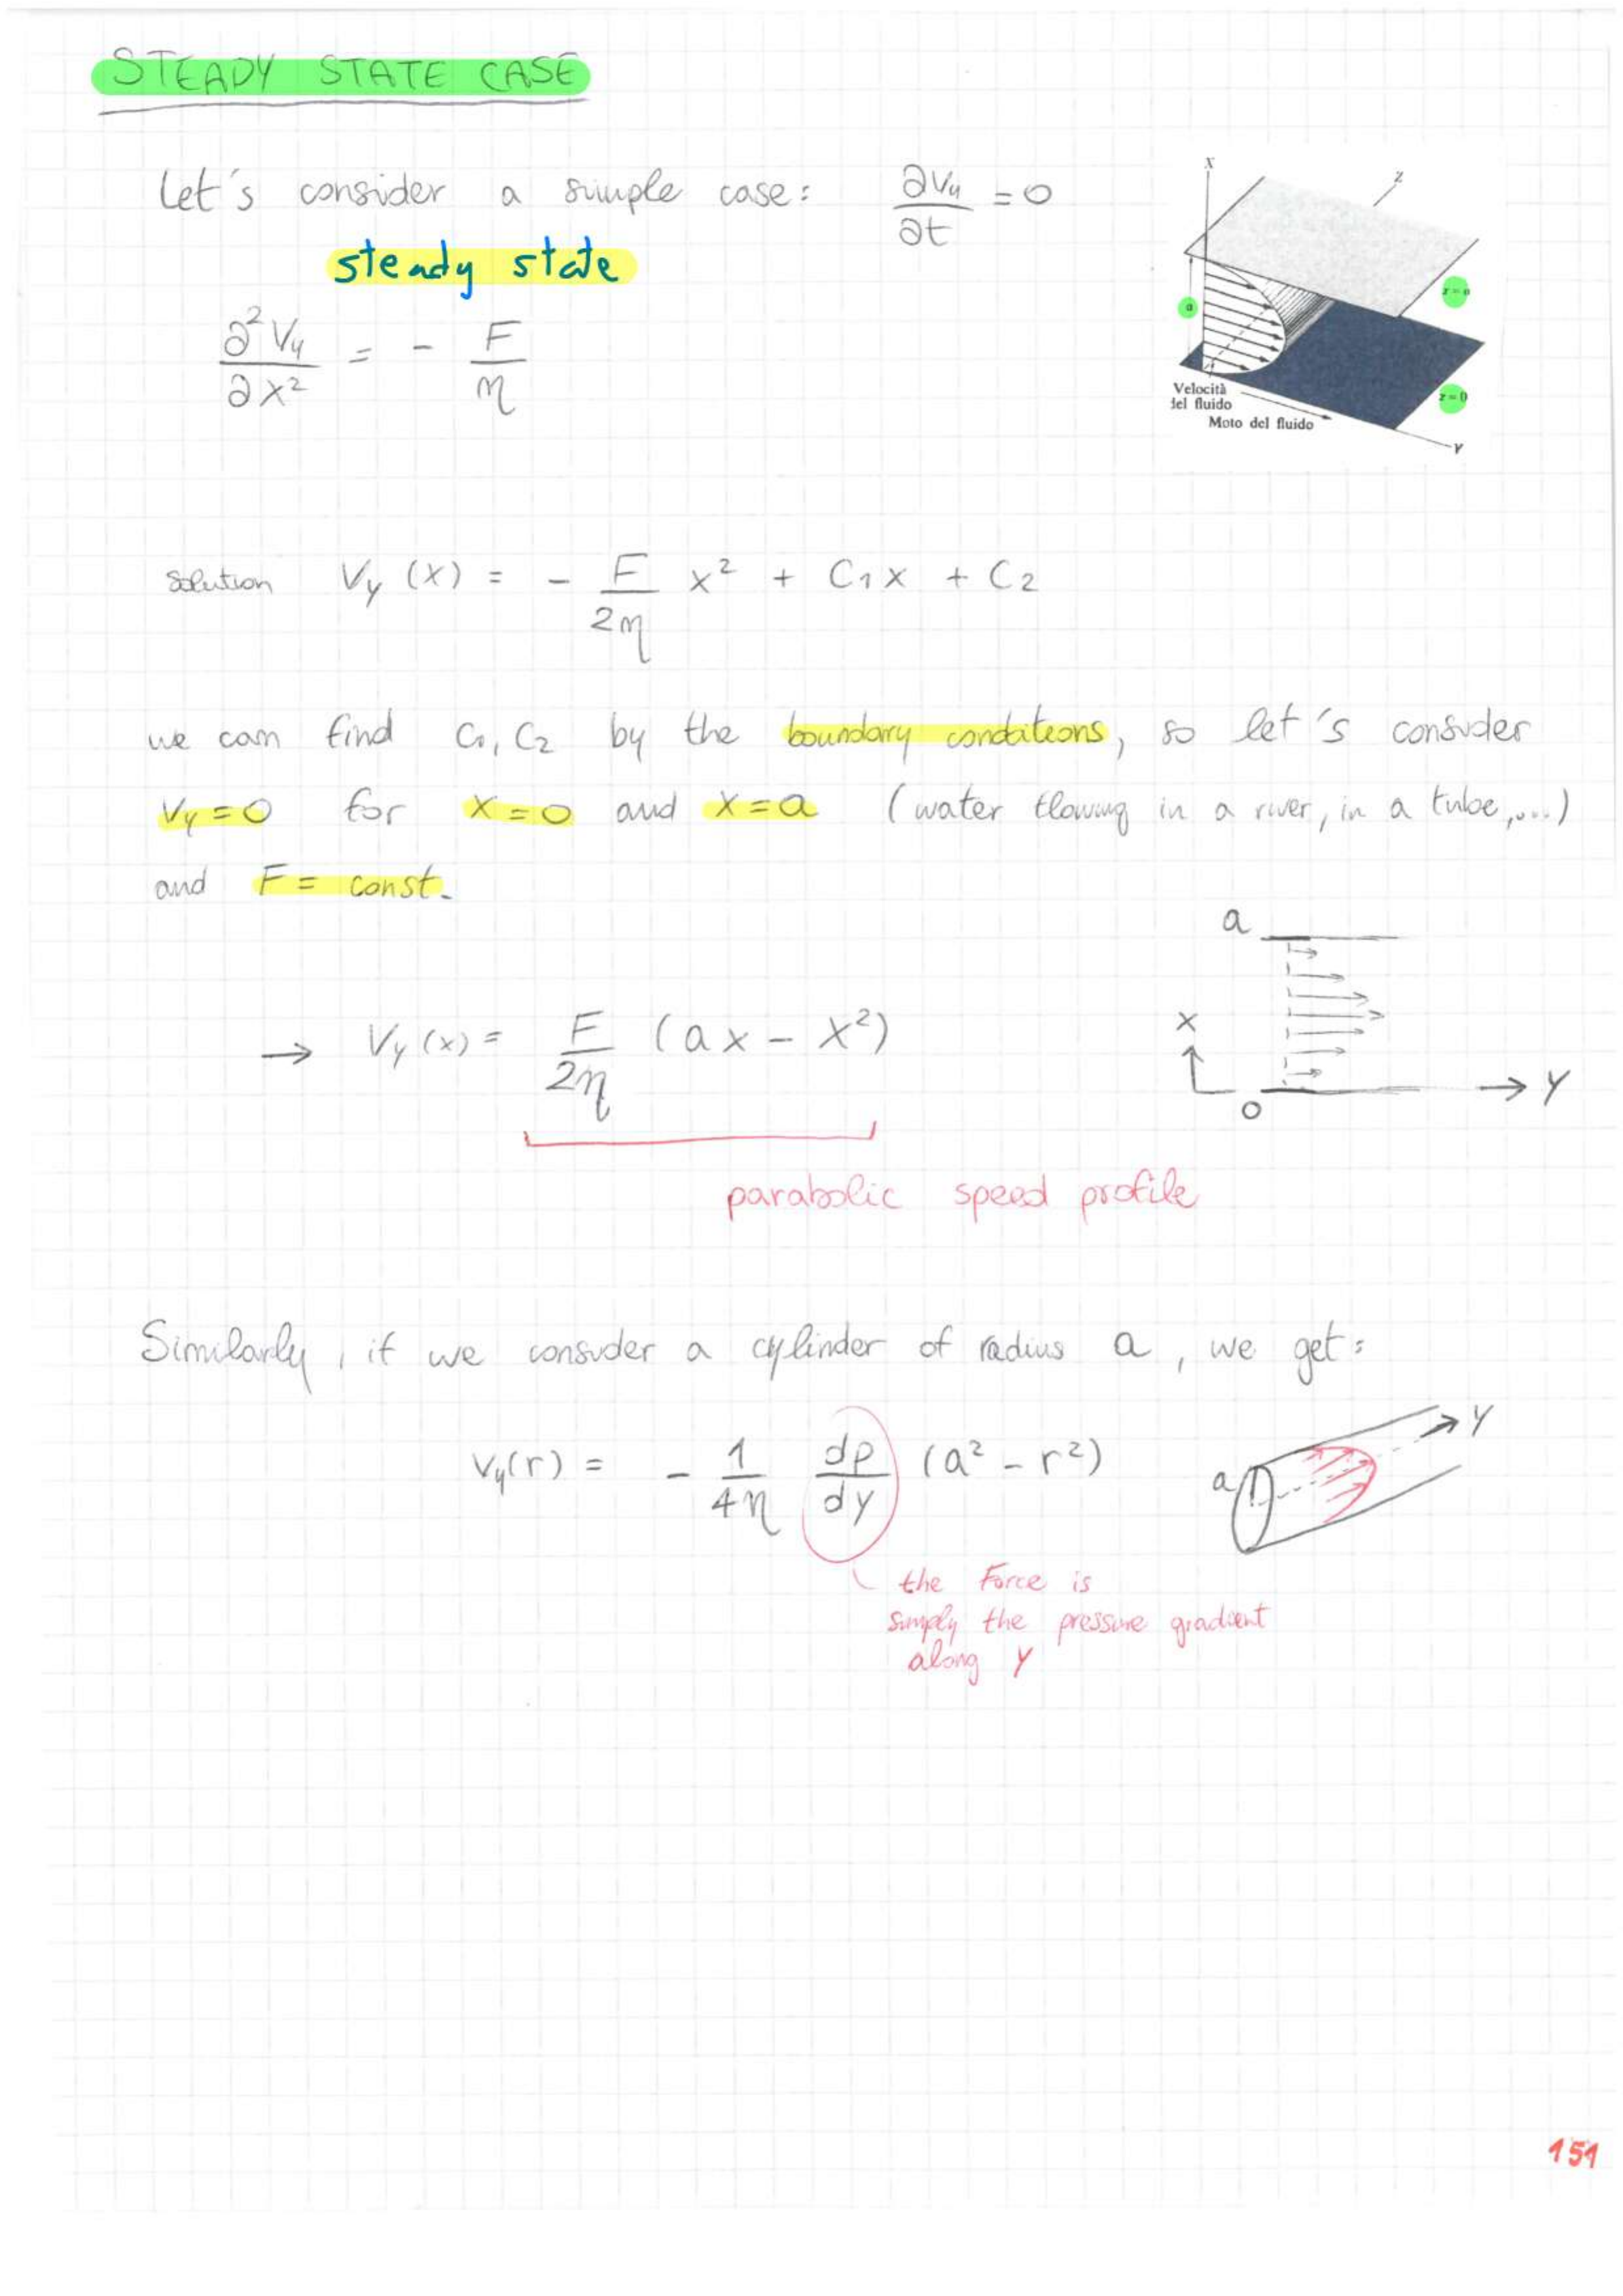 STEADY STATE CASE
Let's consider a simple case: ∂Vy/∂t = 0
steady state
∂²Vy/∂x² = - F/η
X
Z
a
z = a
z = 0
Velocità
del fluido
Moto del fluido
Y
solution Vy (x) = - F/2η x² + C1x + C2
we can find C1, C2 by the boundary conditions, so let's consider
Vy = 0 for x = 0 and x = a (water flowing in a river, in a tube,...)
and F = const.
a
x
0
Y
→ Vy (x) = F/2η (ax - x²)
parabolic speed profile
Similarly, if we consider a cylinder of radius a, we get:
Vy(r) = - 1/4η dp/dy (a² - r²)
a
Y
the Force is
simply the pressure gradient
along y
151